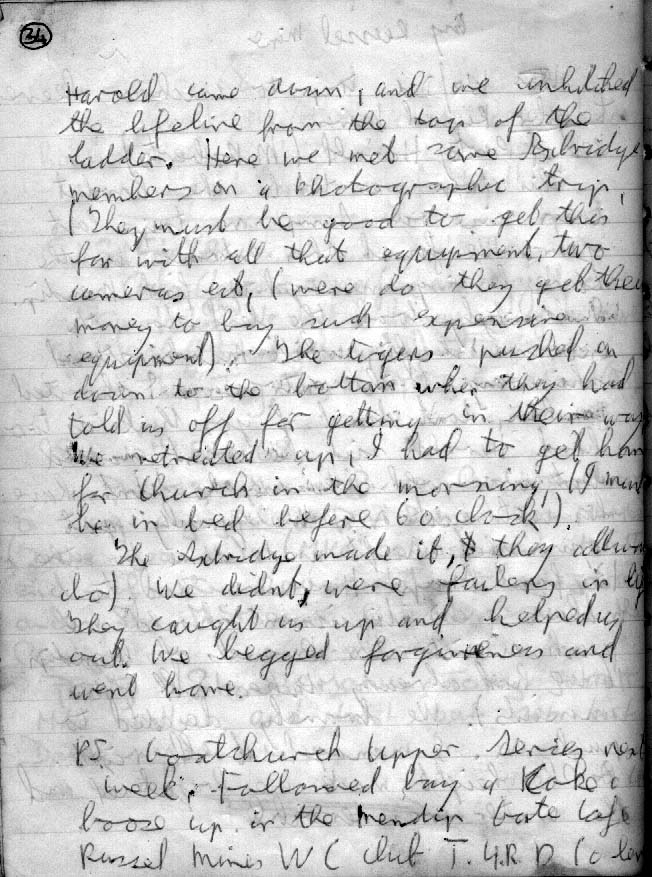 34
Harold came down, and we unhitched
the lifeline from the top of the
ladder. Here we met some Axbridge
members on a photographic trip,
(They must be good to get this
far with all that equipment, two
cameras ect, (were do they get the
money to buy such expensive
equipment). The tigers pushed on
down to the bottom when they had
told us off for getting in their way
We retreated up, I had to get home
for church in the morning, (I must
be in bed before 6 o clock!).
The Axbridge made it, they allways
do). We didnt, were failers in life
They caught us up and helped us
out. We begged forgiveness and
went home.
PS. Goatchurch Upper Series next
week, Followed by a Coke
booze up in the Mendip Gate Cafe
Russel Mines W C Club T.Y.R.D